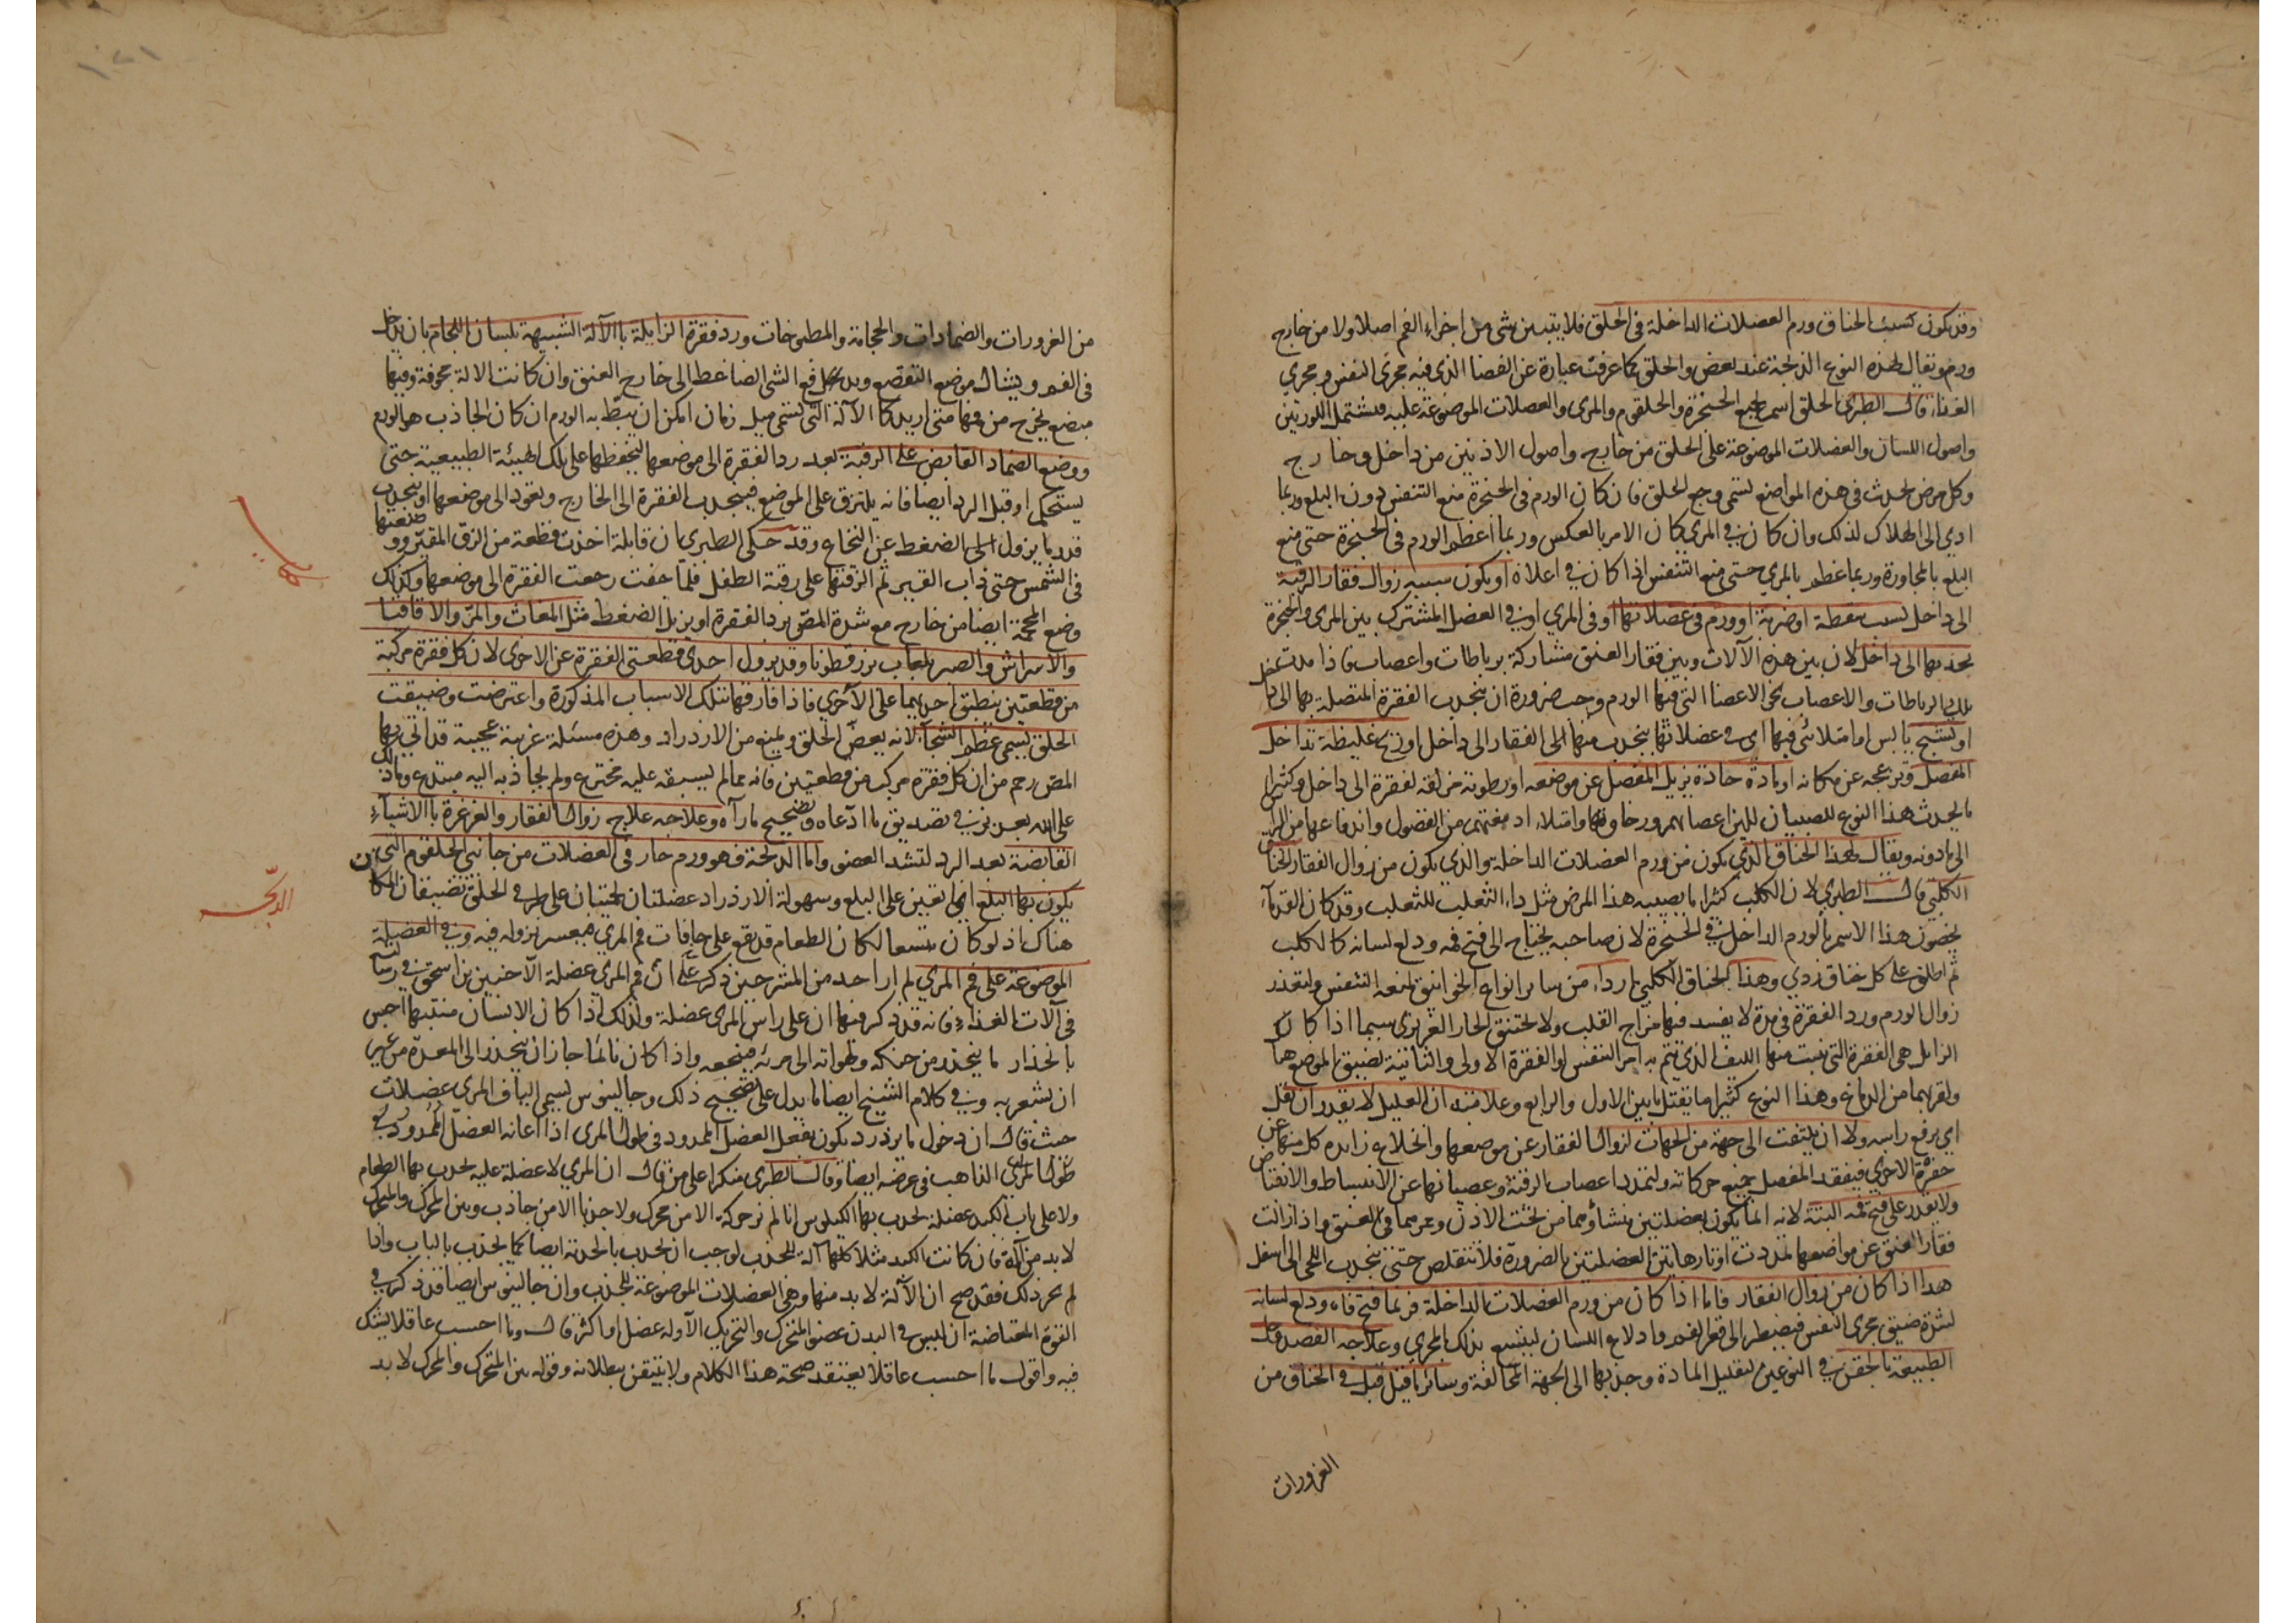 وقد يكون سبب الخناق ورم العضلات الداخلة في الحلق فلا يتبين شي من اجزاء الفم اصلا ولا من خارج
ورم ويقال لهذه النوع الذبحة عند بعض والحلق كما عرفت عبارة عن الفضا الذي فيه مجرى النفس ومجرى
الغذاء قال الطبري الحلق اسم لجميع الحنجرة والحلقوم والمرى والعضلات الموضوعة عليه فيشتمل اللوزتين
واصول اللسان والعضلات الموضوعة على الحلق من خارج واصول الاذنين من داخل وخارج
وكل مرض يحدث في هذه المواضع يسمى وجع الحلق فان كان الورم في الحنجرة منع التنفس دون البلع وربما
ادى الى الهلاك لذلك وان كان في المري كان الامر بالعكس وربما اعظم الورم في الحنجرة حتى منع
البلع بالمجاورة وربما عظم بالمري حتى منع التنفس اذا كان في اعلاه او يكون سببه زوال فقار الرقبة
الى داخل بسبب سقطة او ضربة او ورم في عضلاتها او في المري او في العضل المشترك بين المرى والحنجرة
يجذبها الى داخل لان بين هذه الآلات وبين فقار العنق مشاركة برباطات واعصاب فاذا مددت
تلك الرباطات والاعصاب نحو الاعضا التي فيها الورم وجب ضرورة ان ينجذب الفقرة المتصلة بها الى داخل
او تشنج يابس او امتلائي فيها اى في عضلاتها ينجذب منها الى الفقار الى داخل او ريح غليظة تداخل
المفصل وتزعجه عن مكانه او مادة حادة يزيل المفصل عن موضعه او رطوبة مزلقة لفقرة الى داخل وكثيرا
ما يحدث هذا النوع للصبيان للين اعصابهم ورخاوتها وامتلاء ادمغتهم من الفضول واندفاعها من الراس
الى ما دونه ويقال لهذا الخناق الذي يكون من ورم العضلات الداخلة والذي يكون من زوال الفقار الخناق
الكلبي قال الطبري لان الكلب كثيرا ما يصيبه هذا المرض مثل داء الثعلب للثعلب وقد كان القدماء
يخصون هذا الاسم بالورم الداخل في الحنجرة لان صاحبه يحتاج الى فتح فمه ودلع لسانه كالكلب
ثم اطلق على كل خناق ردي وهذا الخناق الكلبي اردا من ساير انواع الخوانيق لمنعه التنفس وتعذر
زوال الورم ورد الفقرة في مدة لا يفسد فيها مزاج القلب ولا يختنق الحار الغريزي سيما اذا كان
الزايل هي الفقرة التي تنبت منها الليف الذي يتم به امر التنفس او الفقرة الاولى والثانية لضيق الموضع هنا
ولقربهما من الدماغ وهذا النوع كثيرا ما يقتل ما بين الاول والرابع وعلامته ان العليل لا يقدر ان يقل
اي يرفع راسه ولا ان يلتفت الى جهة من الجهات لزوال الفقار عن موضعها وانخلاع زايده كل منها عن
حفرة الاخرى فيفقد المفصل جميع حركاته ولتمدد اعصاب الرقبة وعصيانها عن الانبساط والانقباض
ولا يقدر على فتح فمه البتة لانه انما يكون بعضلتين منشاؤهما من تحت الاذن وممرهما في العنق واذا زالت
فقار العنق عن مواضعها تمددت اوتار هاتين العضلتين بالضرورة فلا تتقلص حتى ينجذب اللحى الى اسفل
هذا اذا كان من زوال الفقار فاما اذا كان من ورم العضلات الداخلة فربما فتح فاه ودلع لسانه
لشدة ضيق مجرى النفس فيضطر الى فغر الفم وادلاع اللسان ليتسع بذلك المجرى وعلاجه الفصد وحل
الطبيعة بالحقن في النوعين لتقليل المادة وجذبها الى الجهة المخالفة وسائر ما قيل قبل في الخناق من
الغرورات
من الغرورات والضمادات والحجامة والمطبوخات ورد فقرة الزايلة بالآلة الشبيهة بلسان اللجام بان يدخل
في الفم ويشال موضع التقصع ويدفع الشى الضاغط الى خارج العنق وان كانت الالة مجوفة وفيها
مبضع يخرج من فمها متى اريد كالآلة التي تسمى ميل زمان امكن ان يبط به الورم ان كان الجاذب هو الورم
ووضع الضماد القابض على الرقبة بعد رد الفقرة الى موضعها ليحفظها على تلك الهيئة الطبيعية حتى
يستحكم او قبل الرد ايضا فانه يلتزق على الموضع فينجذب الفقرة الى الخارج ويعود الى موضعها او ينجذب
قدر ما يزول الضغط عن النخاع وقد حكى الطبري ان قابلة اخذت قطعة من الزق المقير ووضعتها
في الشمس حتى ذاب القير ثم الزقتها على رقبة الطفل فلما جفت رجعت الفقرة الى موضعها وكذلك
وضع المحجمة ايضا من خارج مع شدة المص يرد الفقرة او يزيل الضغط مثل المغاث والمر والاقاقيا
والاسراش والصبر بلعاب بزر قطونا وقد يزول احدى قطعتي الفقرة عن الاخرى لان كل فقرة مركبة
من قطعتين ينطبق احديهما على الاخرى فاذا فارقتها تلك الاسباب المذكورة واعترضت وضيقت
الحلق يسمى عظم الشجا لانه يعض الحلق ويمنع من الازدراد وهذه مسئلة غريبة عجيبة قد اتى بها
المص رحم من ان كل فقرة مركب من قطعتين فانه مما لم يسبقه عليه مخترع ولم يجاذبه اليه مبتدع وما ذلك
على الله بعزيز في تصديق ما ادعاه وتصحيح ما رآه وعلاجه علاج زوال الفقار والغرغرة بالاشياء
القابضة بعد الرد لتشد العضو واما الذبحة فهو ورم حار في العضلات من جانبي الحلقوم التي
يكون بها البلع المعينين على البلع وسهولة الازدراد عضلتان لحميتان على طرفي الحلق تضيقان المكان
هناك اذ لو كان متسعا لكان الطعام قد يقع على حافات فم المري فيعسر نزوله فيه وفي العضلة
الموضوعة على فم المري لم ار احد من المشرحين ذكر على ان فم المري عضلة الا حنين بن اسحق في رسالته
في آلات الغذاء فانه قد ذكر فيها ان على راس المري عضلة ولذلك اذا كان الانسان منتبها احس
بانحدار ما ينحدر من حنكه ولهواته الى مريه فيمنعه واذا كان نائما جاز ان ينحدر الى المعدة من غير
ان يشعر به وفي كلام الشيخ ايضا ما يدل على تصحيح ذلك وجالينوس يسمى الياف المرى عضلات
حيث قال ان دخول ما يزدرد يكون بفعل العضل الممدود في طول المرى اذا اعانه العضل الممدود في
طول المرى الذاهب في عرضه ايضا وقال الطبري منكرا على من قال ان المري لا عضلة عليه يجذب بها الطعام
ولا على باب الكبد عضلة يجذب بها الكيلوس انا لم نر حركة الا من محرك ولا جذبا الا من جاذب وبين المحرك والمتحرك
لا بد من آلة فان كانت الكبد مثلا كلها آلة للجذب لوجب ان يجذب بالحدبة ايضا كما يجذب بالباب واذا
لم نجد ذلك فقد صح ان الآلة لا بد منها وهي العضلات الموضوعة للجذب وان جالينوس ايضا قد ذكر في
القوة المقتاضية ان ليس في البدن عضو المتحرك والتحريك الا وله عضل او اكثر قال وما احسب عاقلا يشك
فيه واقول ما احسب عاقلا يعتقد صحة هذا الكلام ولا يتيقن ببطلانه وقوله بين المتحرك والمحرك لا بد
الذبحة